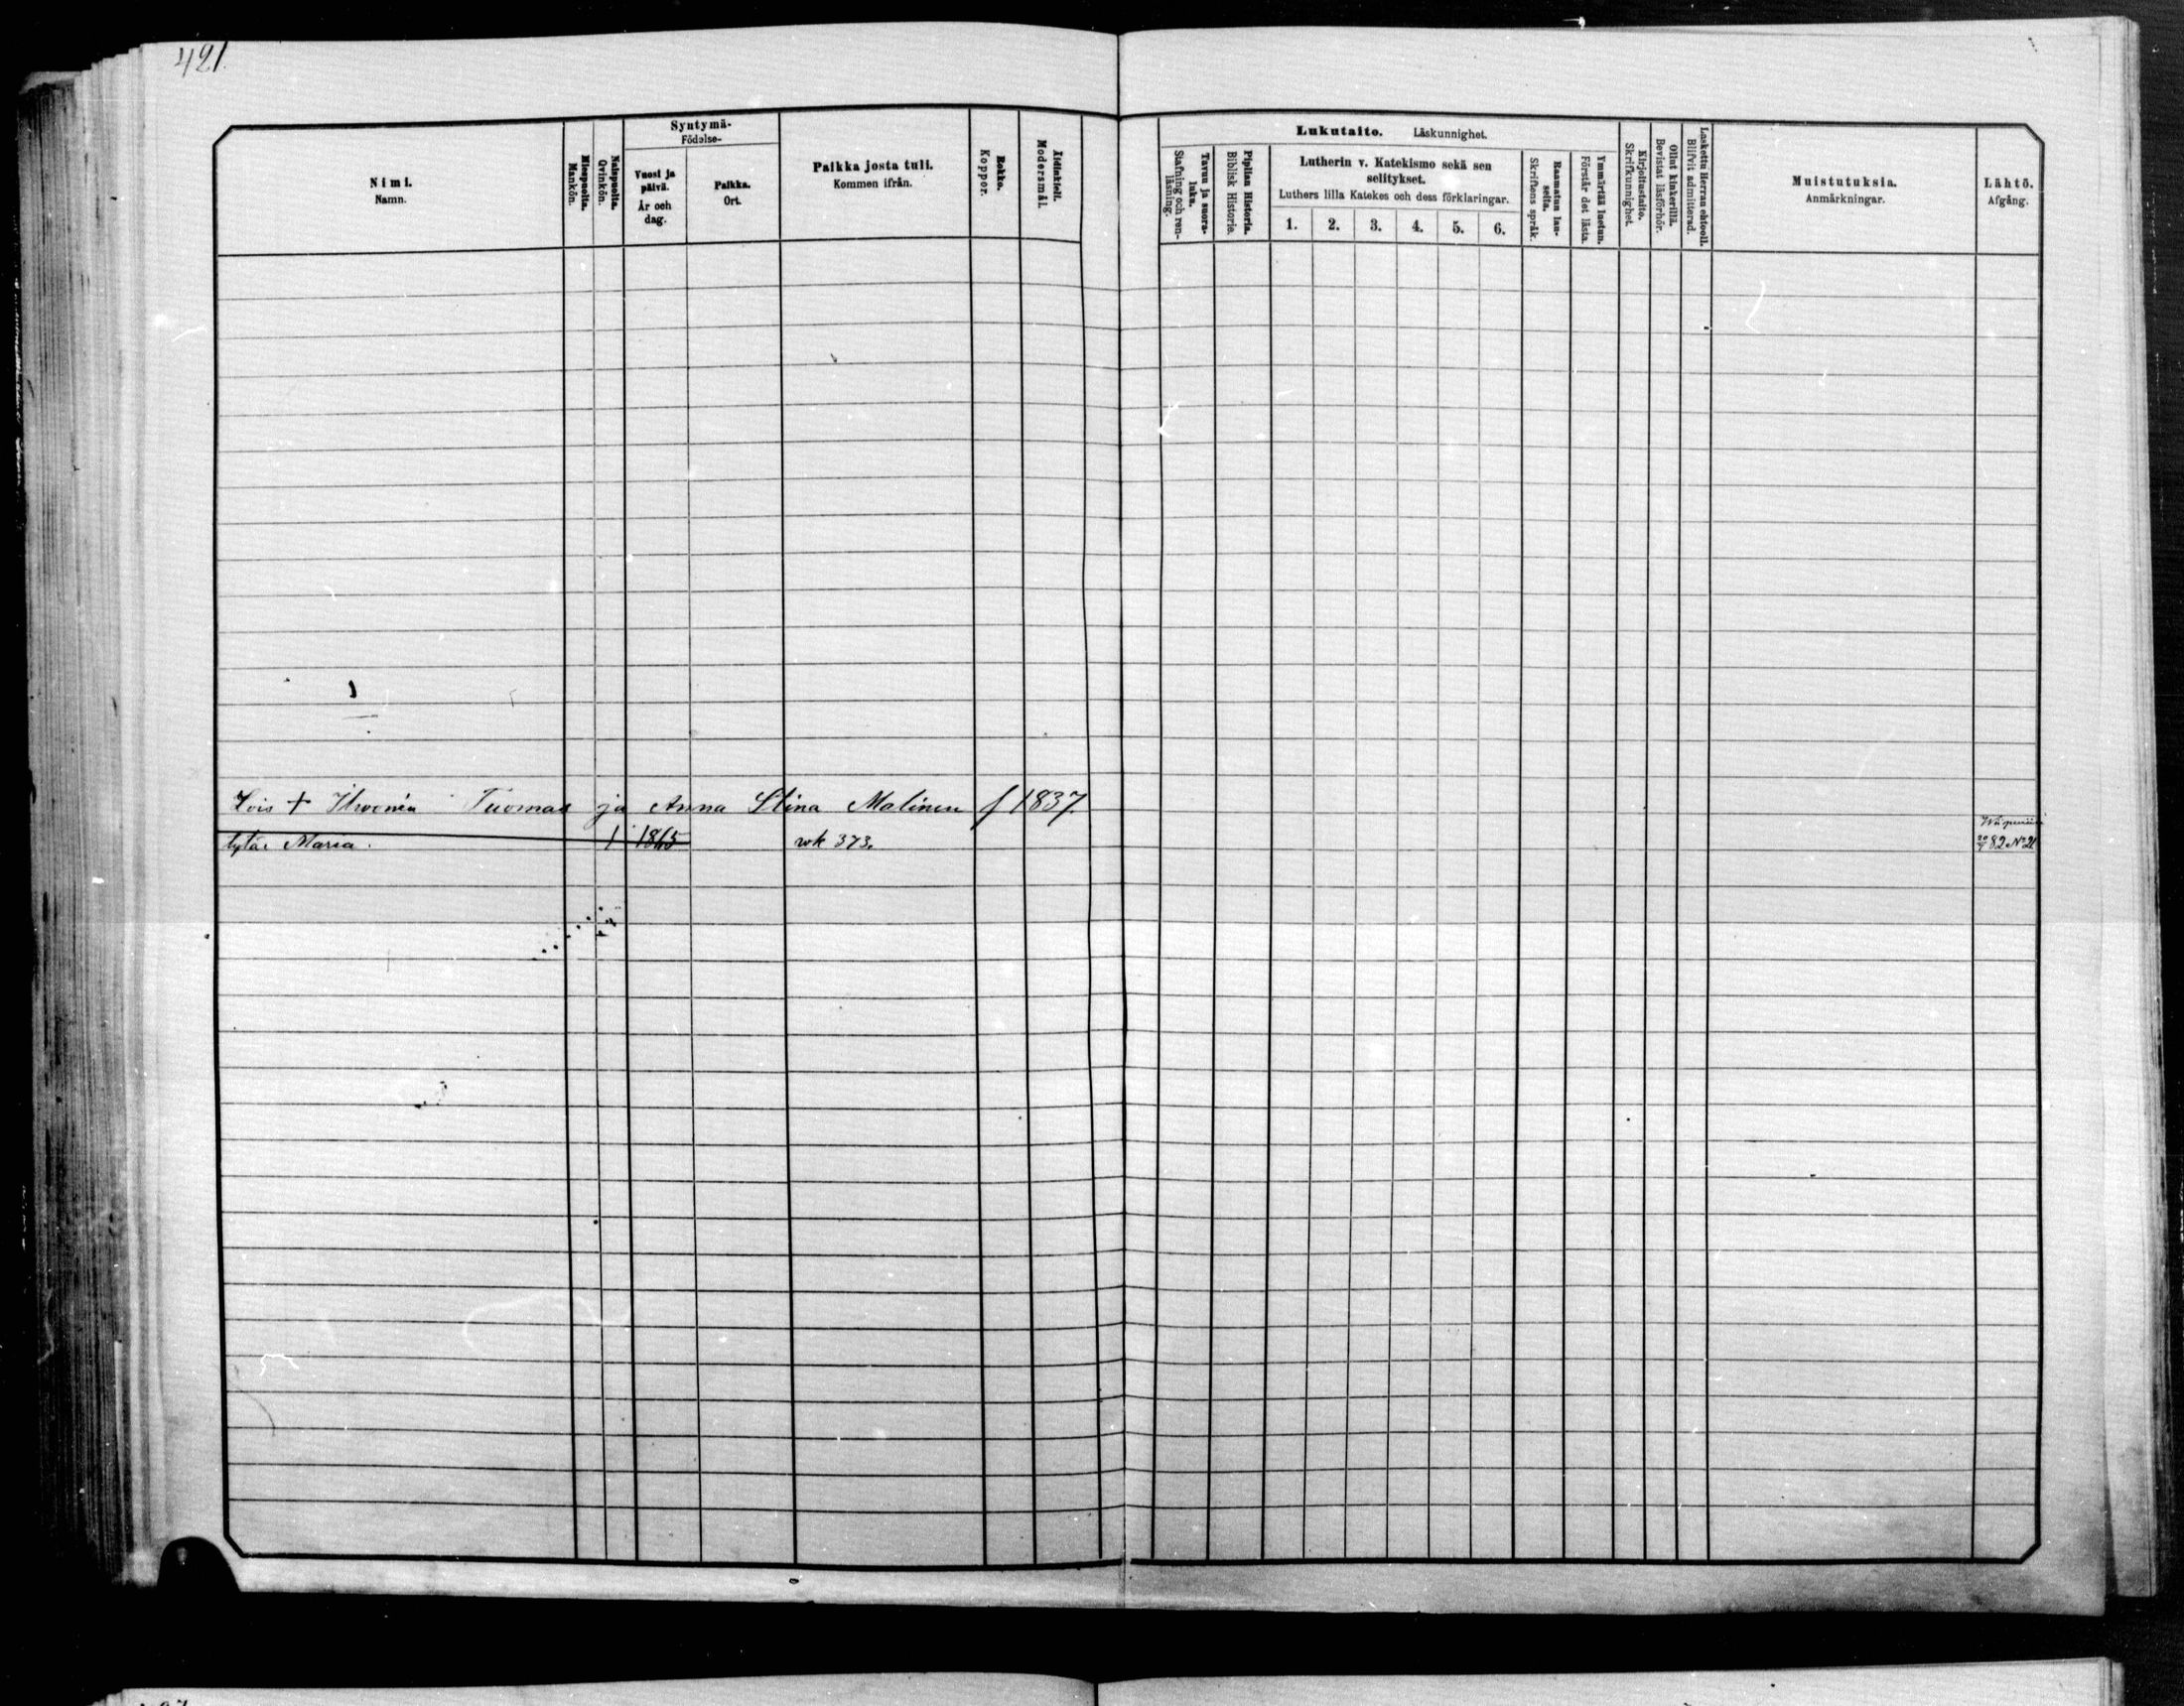 421.
Nimi.
Namn.
Miespuolia.
Mankön.
Naispuolia.
Qvinkön.
Syntymä-
Födelse-
Vuosi ja
päivä.
År och
dag.
Paikka.
Ort.
Paikka josta tuli.
Kommen ifrån.
Rokko.
Koppor.
Äidinkieli.
Modersmål.
Lukutaito. Läskunnighet.
Tavuu ja suora-
luku.
Stafning och ren-
läsning.
Piplian Historia.
Biblisk Historie.
Lutherin v. Katekismo sekä sen
selitykset.
Luthers lilla Katekes och dess förklaringar.
1. 2. 3. 4. 5. 6.
Raamatun lau-
seita.
Skriftens språk.
Ymmärtää luetun.
Förstår det lästa.
Kirjoitustaito.
Skrifkunnighet.
Ollut kinkerillä.
Bevistat läsförhör.
Laskettu Herran ehtooll.
Blifvit admitterad.
Muistutuksia.
Anmärkningar.
Lähtö.
Afgång.
Lois + Tuomas ja Anna Stina Malinen f 1837
tytär Maria. 1 1865 wk 373.
82 N:21